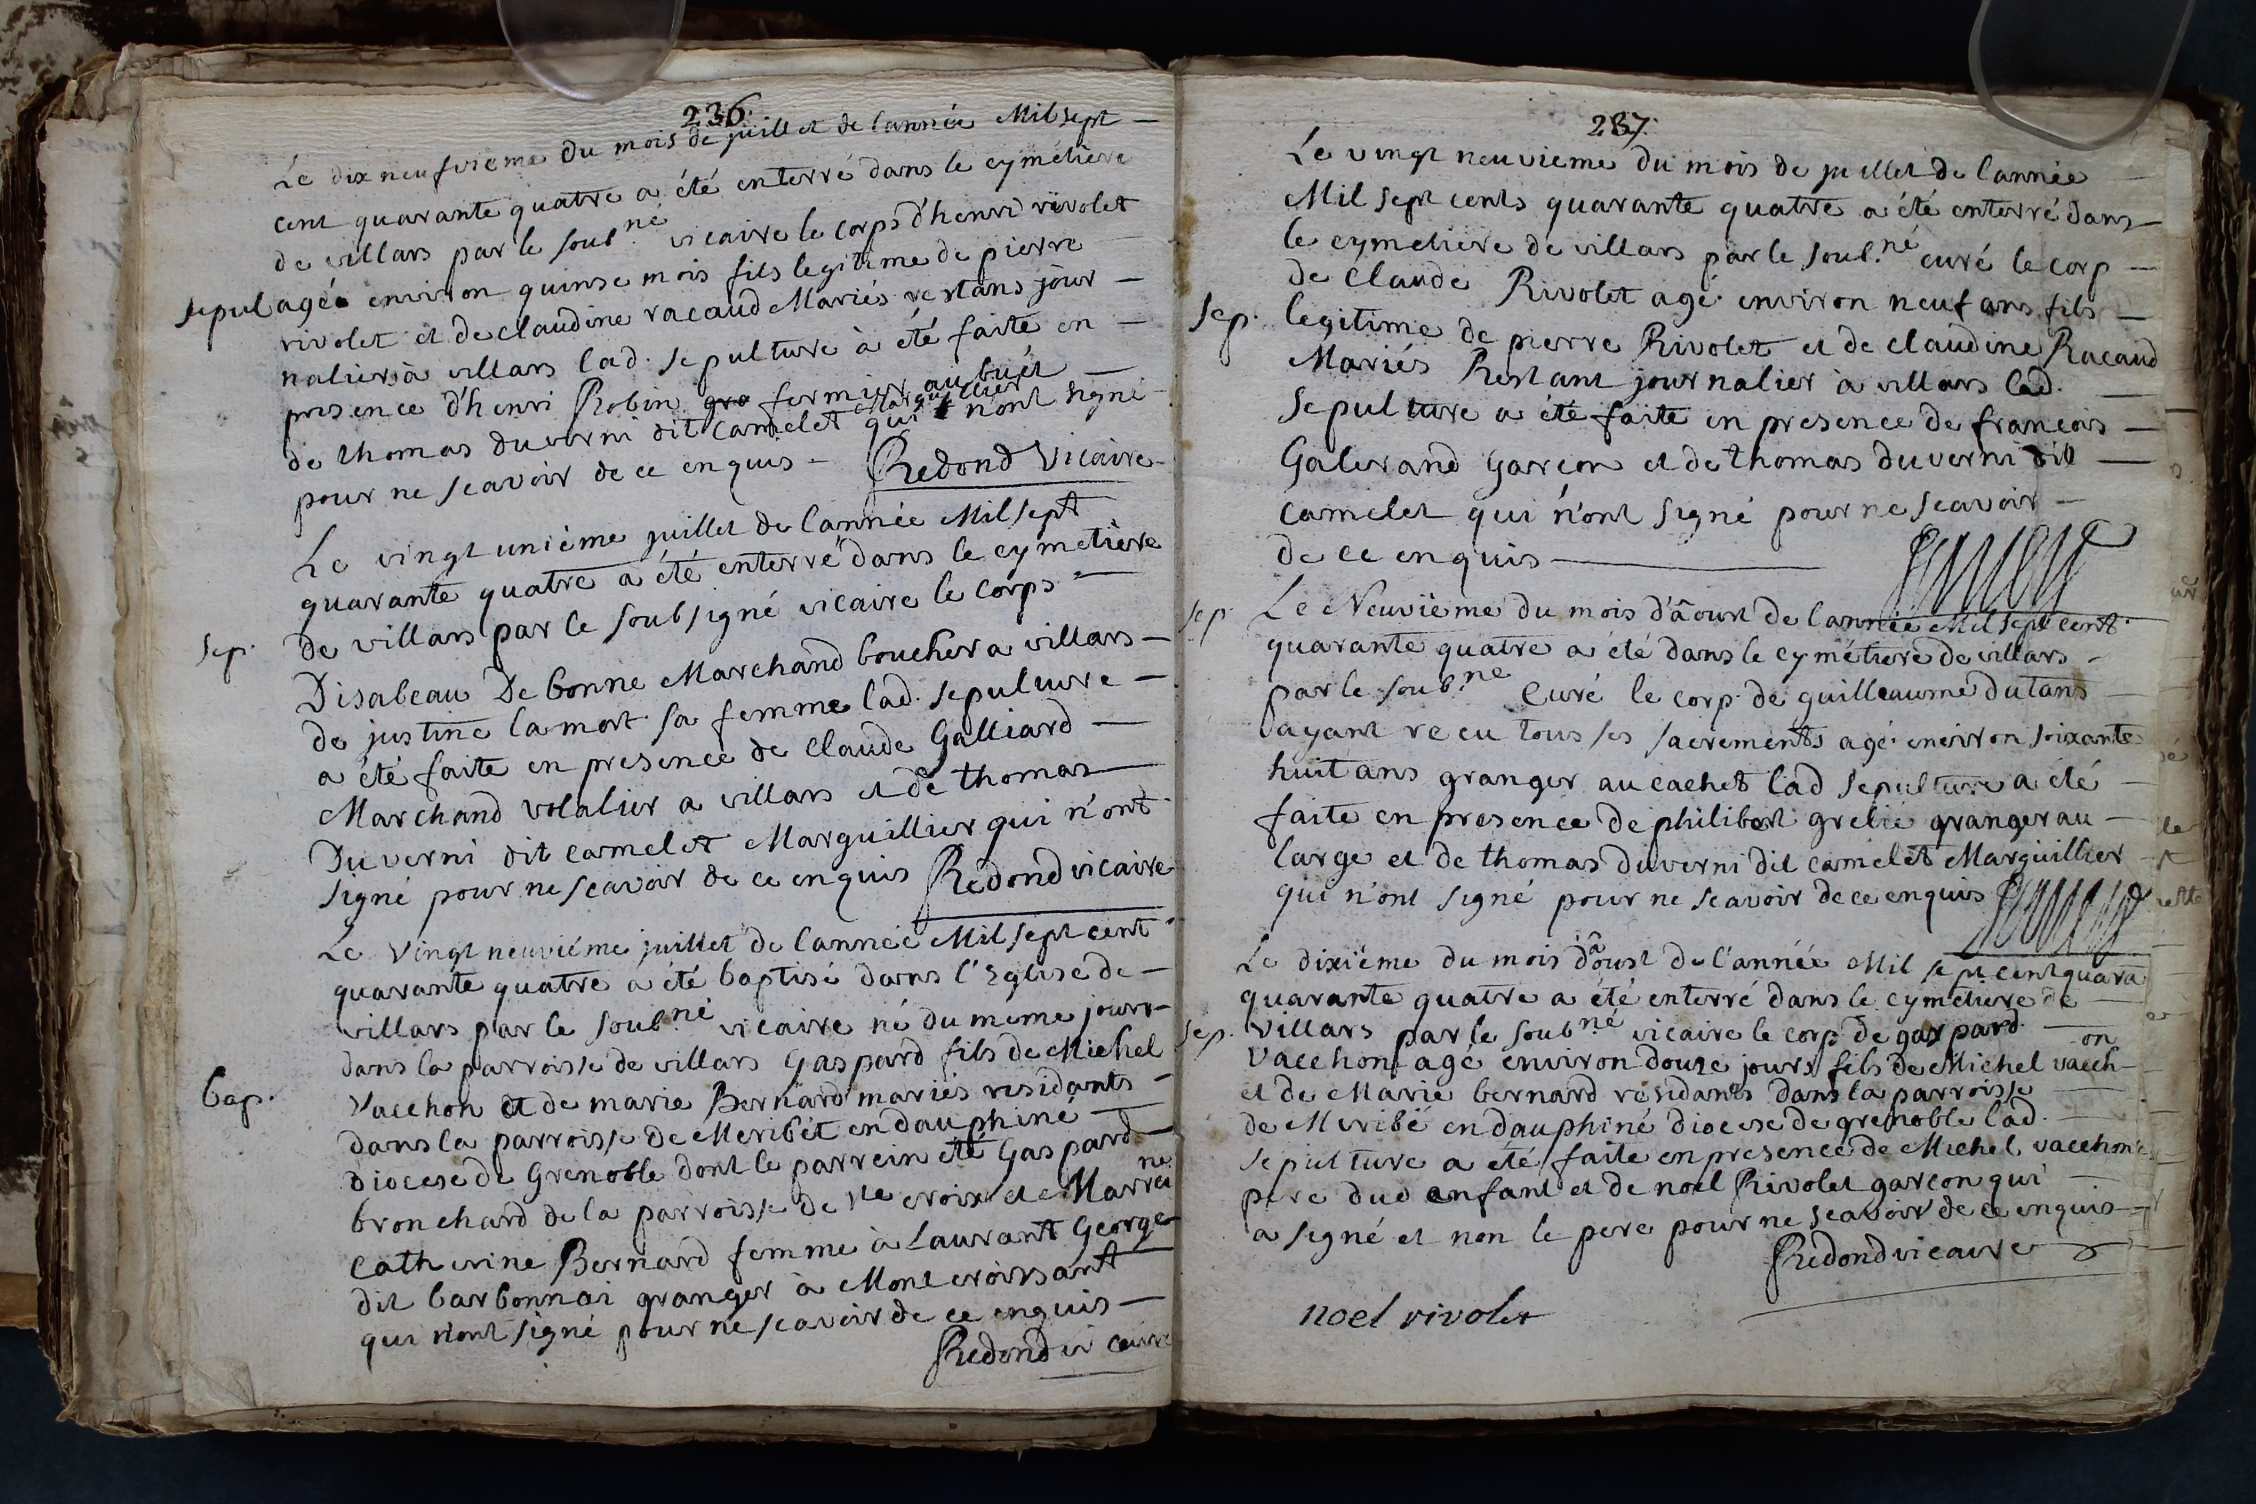 236.
Le dix neufvieme du mois de juillet de lannée Mil sept
cent quarante quatre a été enterré dans le cymétiere
de villars par le soub.né vicaire le corps d'henri rivolet
sepul agée environ quinse mois fils legitime de pierre
rivolet et de claudine racaud Mariés restans jour
naliers à villars lad. sepulture à été faite en
presence d'henri Robin gra fermier au buët
de thomas duverni dit camelet Marguillier qui n'ont signé
pour ne scavoir de ce enquis Redond Vicaire
Le vingt unième juillet de lannée Mil sept
quarante quatre a été enterré dans le cymetiere
de villars par le soubsigné vicaire le corps
sep. Disabeau De bonne Marchand boucher a villars
de justine la mort sa femme lad. sepulture
a été faite en presence de claude Galliard
Marchand volalier a villars et de thomas
Duverni dit camelet Marguillier qui n'ont
signé pour ne scavoir de ce enquis Redond vicaire
Le vingt neuvième juillet de lannée Mil sept cent
quarante quatre a été baptisé dans l'Eglise de
villars par le soub.né vicaire né du même jour
dans la parroisse de villars Gaspard fils de Michel
bap. Vacchon et de marie Bernard mariés residants
dans la parroisse de Meribét en dauphiné
Diocese de Grenoble dont le parrein été Gaspard
bronchard de la parroisse de Ste croix et Marrei ne
Catherine Bernard femme à Laurant George
dit barbonnai granger à Montcroissant
qui n'ont signé pour ne scavoir de ce enquis
Redond vicaire
237.
Le vingt neuvieme du mois de juillet de lannée
Mil sept cents quarante quatre a été enterré dans
le cymetiere de villars par le soub.né curé le corp
de Claude Rivolet agé environ neuf ans fils
sep. legitime de pierre Rivolet et de claudine Racaud
Mariés Restant journalier a villars lad.
sepulture a été faite en presence de francois
Galerand Garcon et de thomas duverni dit
camelet qui n'ont signé pour ne scavoir
de ce enquis
sep. Le Neuvïeme du mois d'âoust de lannée Mil sept cent
quarante quatre a été dans le cymétiere de villars
par le soub.né Curé le corp de guilleaume dutans
ayant recu tous ses sacrements agé environ soixante
huit ans granger au cachet lad sepulture a été
faite en presence de philibert grelié granger au
large et de thomas duverni dit camelet Marguillier
qui n'ont signé pour ne scavoir de ce enquis
Le dixiéme du mois d'âoust de l'année Mil sept cent quara
quarante quatre a été enterré dans le cymetiere de
sep. Villars par le soub.né vicaire le corp de gaspard
Vacchon agé environ douze jours fils de Michel vacch on
et de Marie bernard residants dans la parroisse
de Meribé en dauphiné diocese de grenoble lad.
sepulture a été faite en presence de Michel vacchon
pere dud enfant et de noel Rivolet garcon qui
a signé et non le pere pour ne scavoir de ce enquis
Redond vicaire
noel rivolet